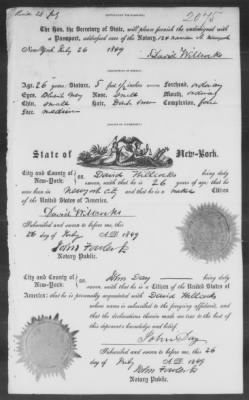 2075
The Hon. the Secretary of State, will please furnish the undersigned with
a Passport, addressed care of the Notary, 124 Nassau St. New York
New York July 26 1849
David Willcocks
Age, 26 years; Stature, 5 feet inches
Forehead, ordinary
Eyes,
Nose, small
Mouth, ordinary
Chin, small
Hair, Dark
Complexion,
Face medium
State of New-York.
City and County of New-York: David Willcocks being duly
sworn, saith that he is 26 years of age; that he
was born in New York City and is a native Citizen
of the United States of America.
David Willcocks
Subscribed and sworn to before me, this
26 day of July A.D. 1849
John
Notary Public.
City and County of New-York: John Day being duly
sworn, saith that he is a Citizen of the United States of
America; that he is personally acquainted with David Willcocks
whose name is subscribed to the foregoing affidavit, and
that the declarations therein made are true to the best of
this deponent's knowledge and belief.
John Day
Subscribed and sworn to before me, this 26
day of July A.D. 1849
John
Notary Public.